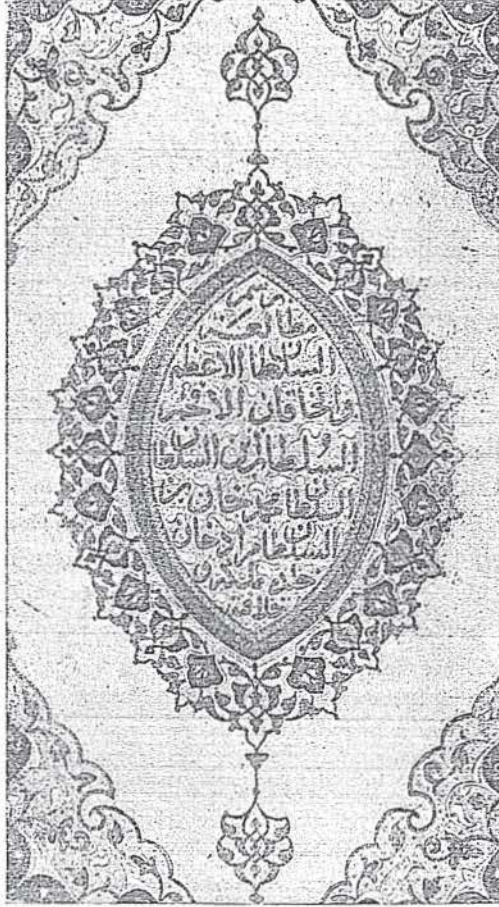 برسم
مطالعة
السلطان الاعظم
والخاقان الافخم
السلطان بن السلطان
السلطان محمد خان بن
السلطان مراد خان